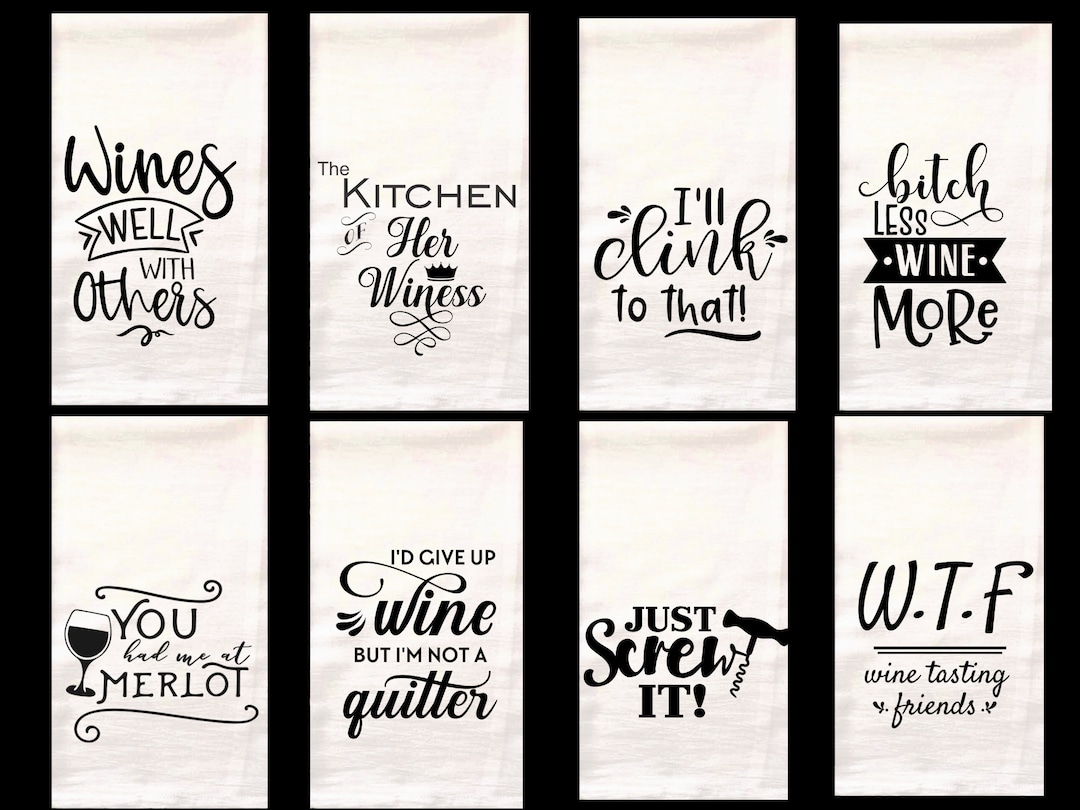 Wines
WELL
WITH
Others
The
KITCHEN
OF Her
Winess
I'll
clink
to that!
bitch
LESS
WINE
MoRe
YOU
had me at
MERLOT
I'D GIVE UP
wine
BUT I'M NOT A
quitter
JUST
Screw
IT!
W.T.F
wine tasting
friends